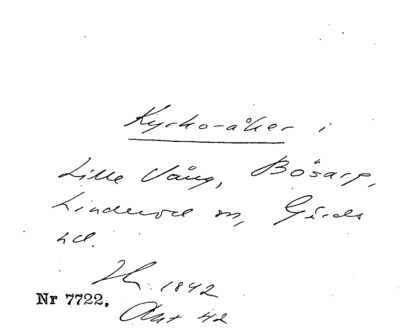 Kyrko-åker i
Lille Vång, Bösarp,
Linderöd sn, Gärds
hd.
Hr. 1842
Nr 7722.
Akt 42